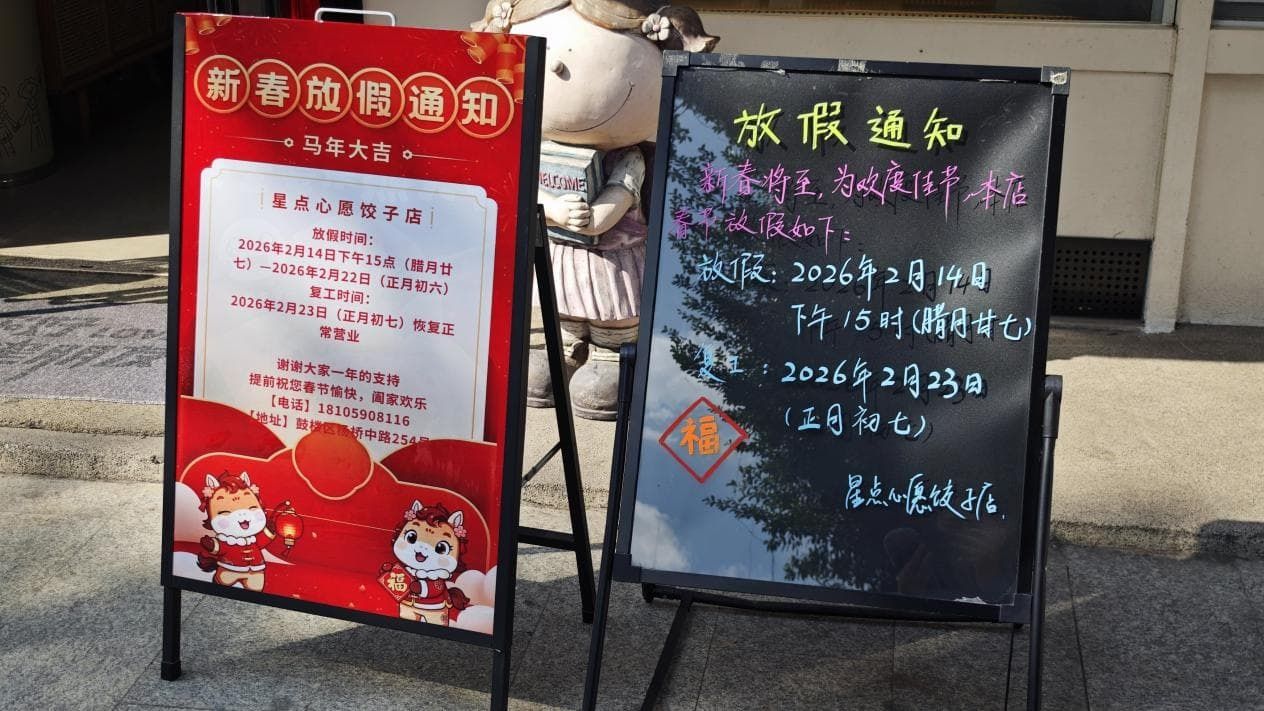 新春放假通知
马年大吉
星点心愿饺子店
放假时间：
2026年2月14日下午15点（腊月廿
七）—2026年2月22日（正月初六）
复工时间：
2026年2月23日（正月初七）恢复正
常营业
谢谢大家一年的支持
提前祝您春节愉快，阖家欢乐
【电话】18105908116
【地址】鼓楼区杨桥中路254号
福
WELCOME
放假通知
新春将至，为欢度佳节，本店
春节放假如下：
放假：2026年2月14日
下午15时（腊月廿七）
复工：2026年2月23日
（正月初七）
福
星点心愿饺子店.